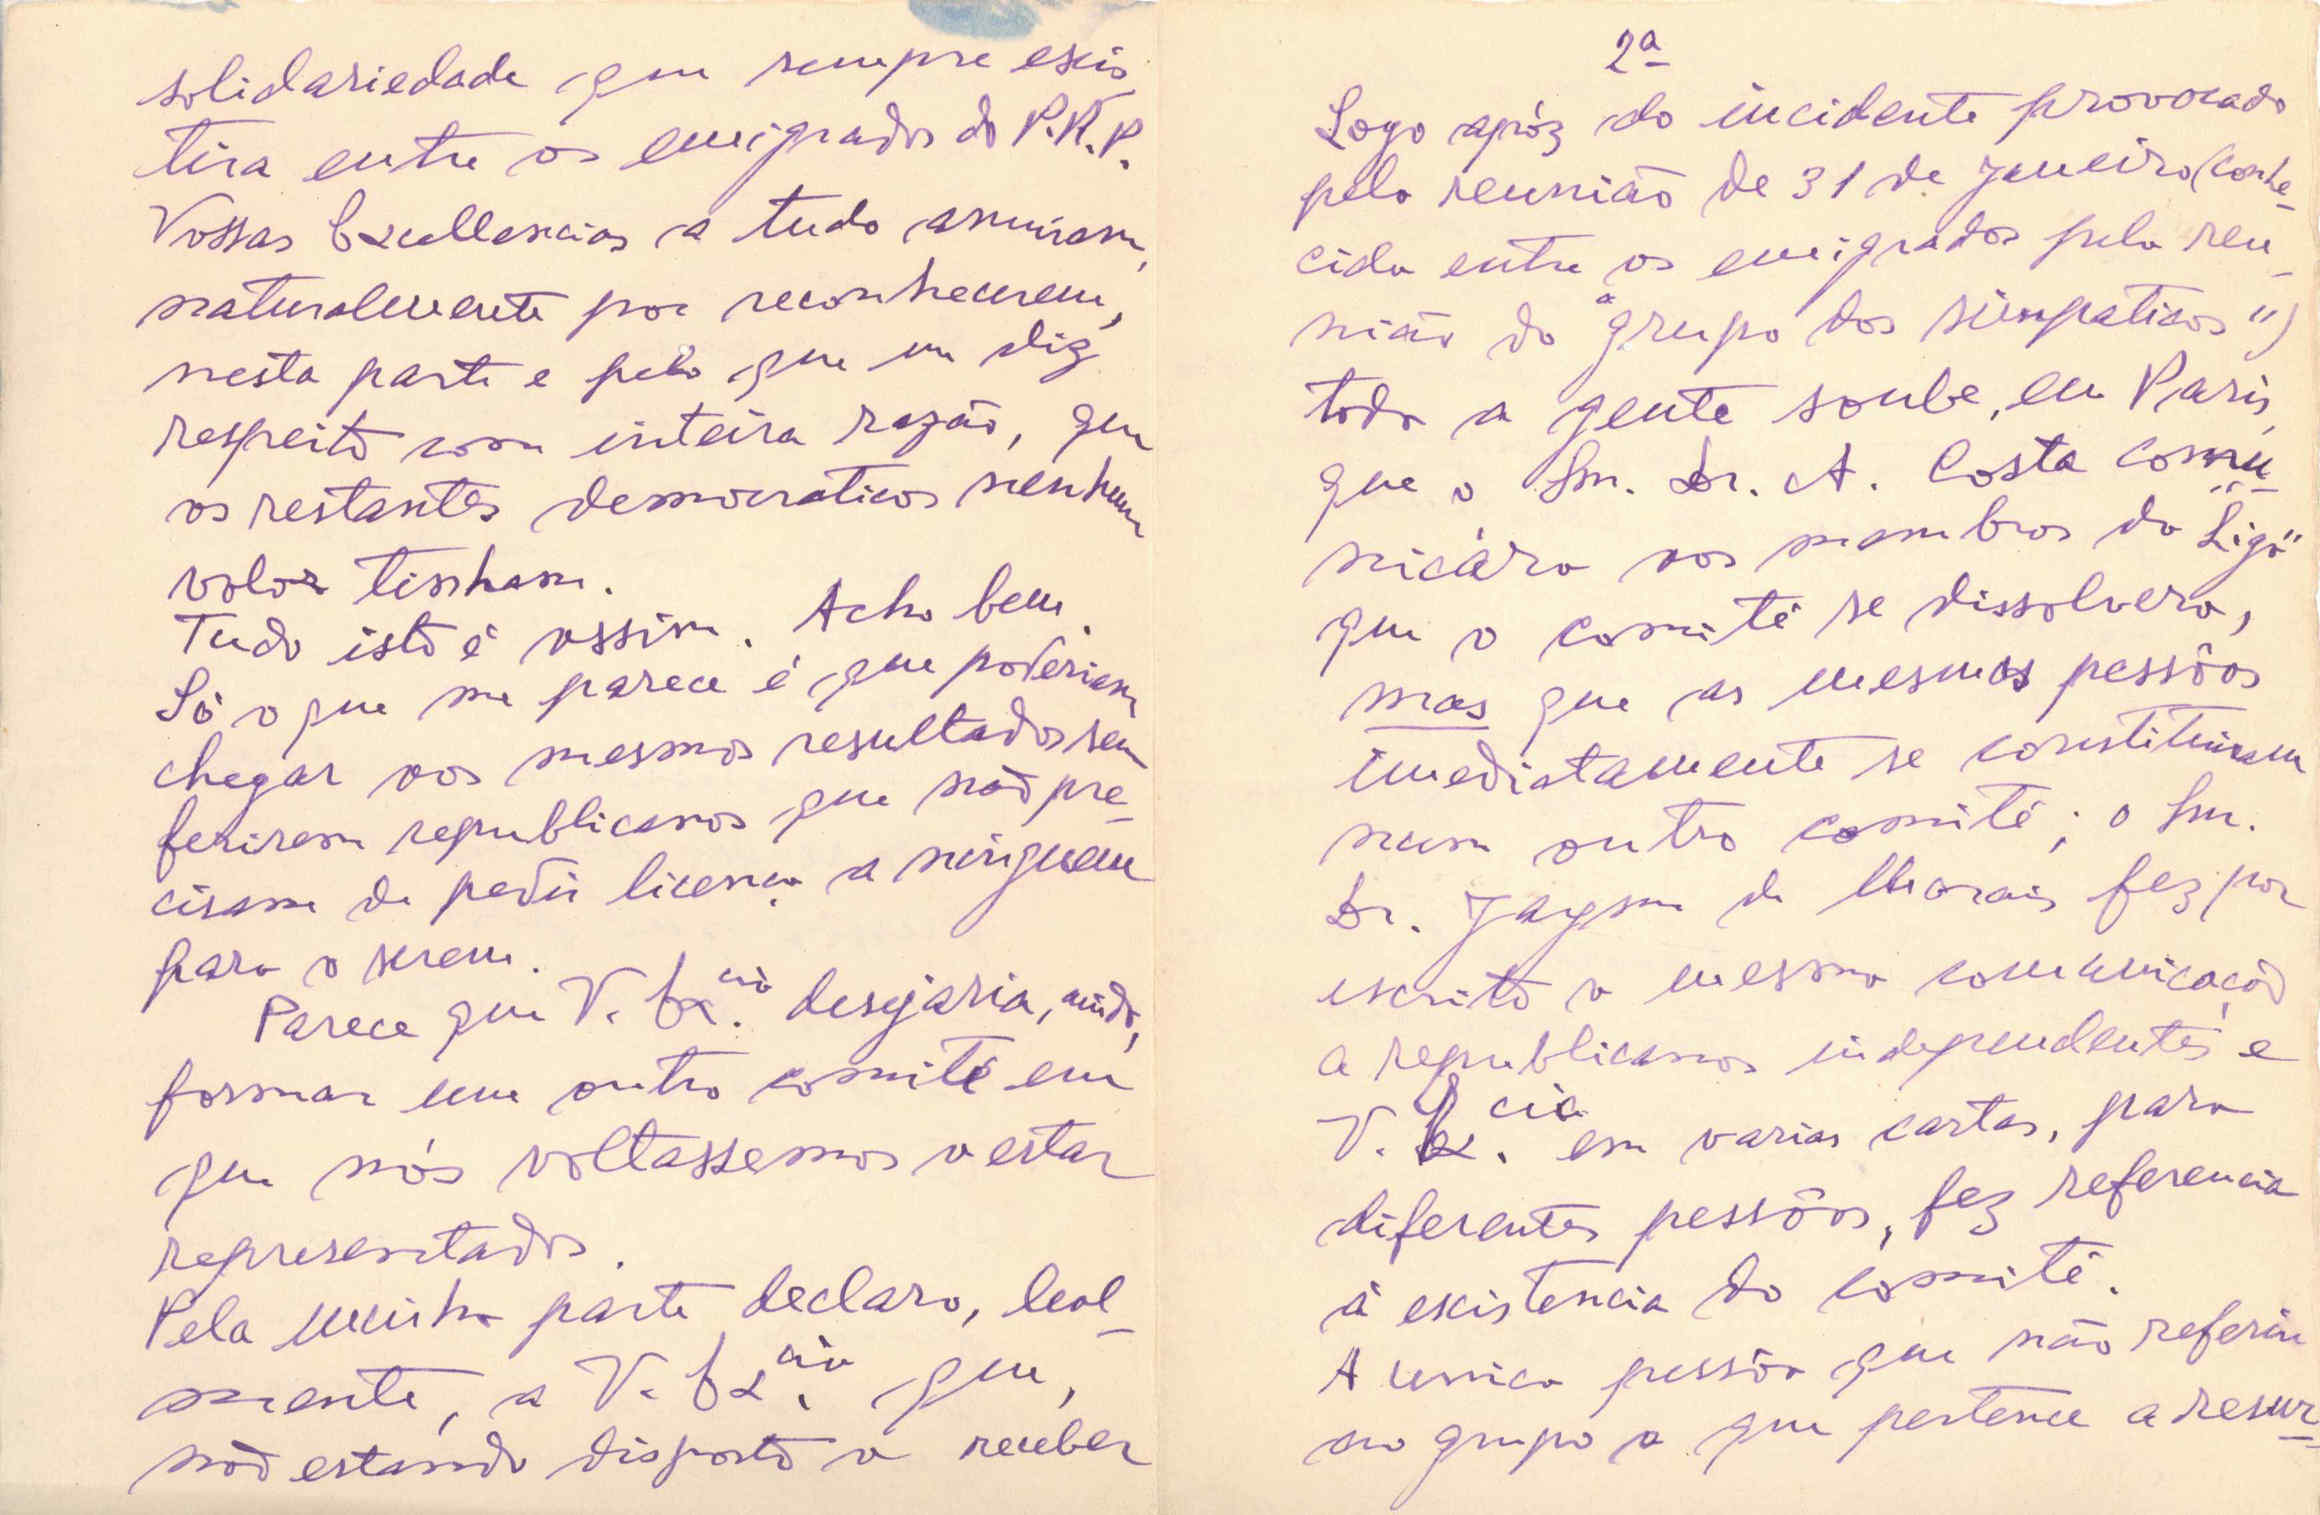 solidariedade que sempre exis
tira entre os emigrados do P.R.P.
Vossas Excellencias a tudo anuiram,
naturalmente por reconhecerem,
nesta parte e pelo que me diz
respeito com inteira razão, que
os restantes democraticos nenhum
valor tinham.
Tudo isto é assim. Acho bem.
Só o que me parece é que poderiam
chegar aos mesmos resultados sem
ferirem republicanos que não pre-
cisam de pedir licença a ninguem
para o serem.
Parece que V. Ex.cia desejaria, ainda,
formar um outro comité em
que nós voltassemos a estar
representados.
Pela minha parte declaro, leal-
mente, a V. Ex.cia que,
não estando disposto a receber
2ª
Logo apóz do incidente provocado
pela reunião de 31 de Janeiro (conhe-
cida entre os emigrados pela reu-
nião do "grupo dos simpaticos")
toda a gente soube, em Paris,
que o Snr. Dr. A. Costa comu-
nicára aos membros da "Liga"
que o comité se dissolvera,
mas que as mesmas pessôas
imediatamente se constituiram
num outro comité; o Snr.
Dr. Jayme de Morais fez por
escrito a mesma comunicação
a republicanos independentes e
V. Ex.cia em varias cartas, para
diferentes pessôas, fez referencia
á existencia do comité.
A unica pessôa que não referiu
no grupo a que pertence a resur-